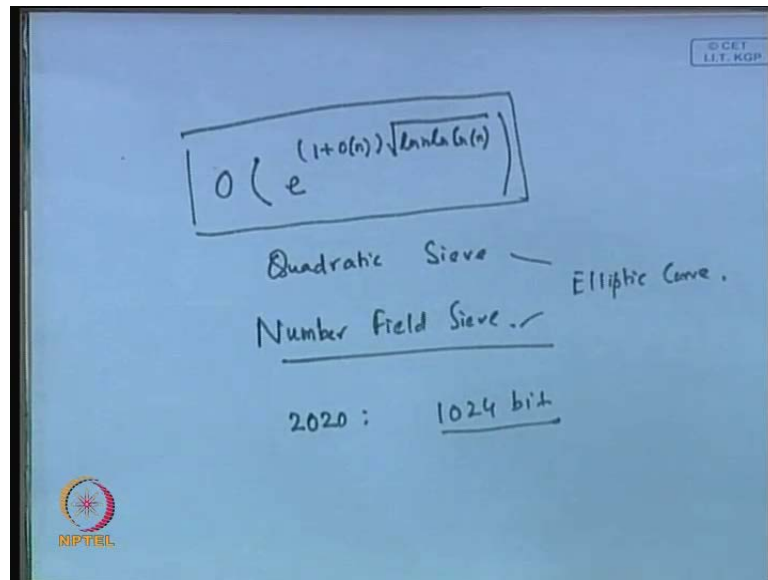 © CET
I.I.T. KGP
O ( e^(1+o(n))√ln n ln ln(n) )
Quadratic Sieve — Elliptic Curve.
Number Field Sieve.
2020 : 1024 bit
NPTEL